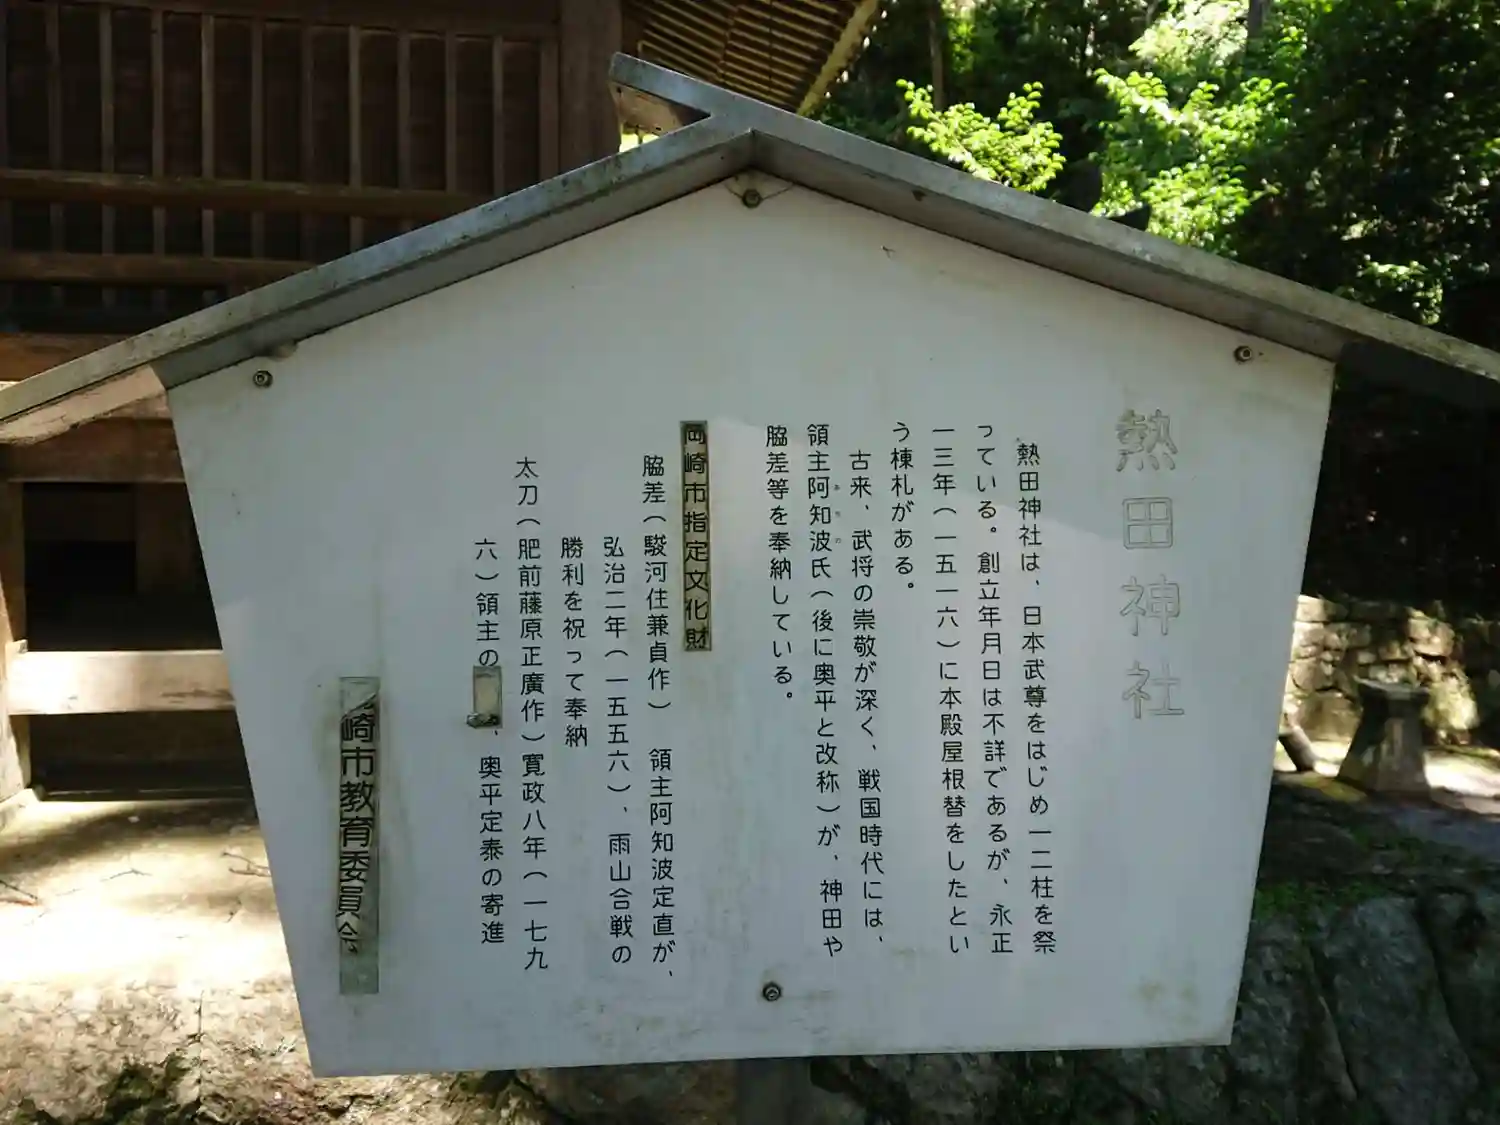 熱田神社
熱田神社は、日本武尊をはじめ一二柱を祭
っている。創立年月日は不詳であるが、永正
一三年(一五一六)に本殿屋根替をしたとい
う棟札がある。
古来、武将の崇敬が深く、戦国時代には、
領主阿知波氏(後に奥平と改称)が、神田や
脇差等を奉納している。
岡崎市指定文化財
脇差(駿河住兼貞作) 領主阿知波定直が、
弘治二年(一五五六)、雨山合戦の
勝利を祝って奉納
太刀(肥前藤原正廣作)寛政八年(一七九
六)領主の、奥平定泰の寄進
崎市教育委員会